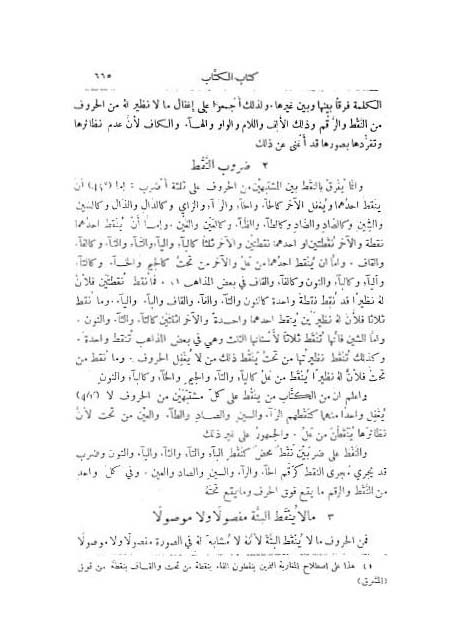 كتاب الكتَّاب ٦٦٥
الكلمة فرقًا بينها وبين غيرها. ولذلك أجمعوا على إغفال ما لا نظير له من الحروف
من النقط والرقم وذلك الألف واللام والواو والهآء والكاف لأن عدم نظائرها
وتفرُّدها بصورها قد أغنى عن ذلك
٢ ضروب النَّقط
وانَّما يُفرق بالنَّقط بين المشتبهَيْن من الحروف على ثلثة أضرب: إما (44ᵛ) أن
ينقط احدهما ويُغفل الآخر كالحآء والخآء والرآء والزاي وكالدال والذال وكالسين
والشين وكالصاد والضاد وكالطآء والظآء وكالعين والغين. وإمَّا أن يُنقط احدهما
نقطة والآخر نقطتين او احدهما نقطتين والآخر ثلثًا كالبآء واليآء والتآء والثآء وكالفآء
والقاف. وامَّا ان يُنقط احدهما من عَلُ والآخر من تحتُ كالجيم والخآء وكالتآء
واليآء وكالبآء والنون وكالفآء والقاف في بعض المذاهب ١). فما نُقط نقطتين فلأنَّ
له نظيرًا قد نُقط نقطة واحدة كالنون والتآء والفآء والقاف والبآء واليآء. وما نقط
ثلاثًا فلأن له نظيرَيْن يُنقط احدهما واحدة والآخر اثنتين كالثآء والتآء والنون.
وامَّا الشين فانَّها تُنقط ثلاثًا لأسنانها الثلث وهي في بعض المذاهب تُنقط واحدة.
وكذلك تُنقط نظيرتها من تحتُ يُنقط ذلك من لا يُغفل الحروف. وما نقط من
تحتُ فلأنَّ له نظيرًا يُنقط من عَلُ كاليآء والتآء والجيم والخآء وكالبآء والنون
واعلم ان من الكتَّاب من ينقُط على كلّ مشتبهَيْن من الحروف لا (45ʳ)
يُغفل واحدًا منهما كنَقطهم الرآء والسين والصاد والطآء والعين من تحت لأنَّ
نظائرها يُنقطْنَ من عَلُ. والجمهور على غير ذلك
والنَّقط على ضربَيْن نَقْطٌ محضٌ كنَقط البآء والتآء والثآء واليآء والنون وضرب
قد يجري مُجرى النقط كرَقم الحآء والرآء والسين والصاد والعين. وفي كل واحد
من النَّقط والرقم ما يقع فوق الحرف وما يقع تحته
٣ ما لا يُنقط البتَّة مفصولًا ولا موصولًا
فمن الحروف ما لا يُنقط البتَّة لأنه لا مُشابِهَ له في الصورة مفصولًا ولا موصولًا
١) هذا على إصطلاح المغاربة الذين ينقطون الفاء بنقطة من تحت والقاف بنقطة من فوق
(المشرق)